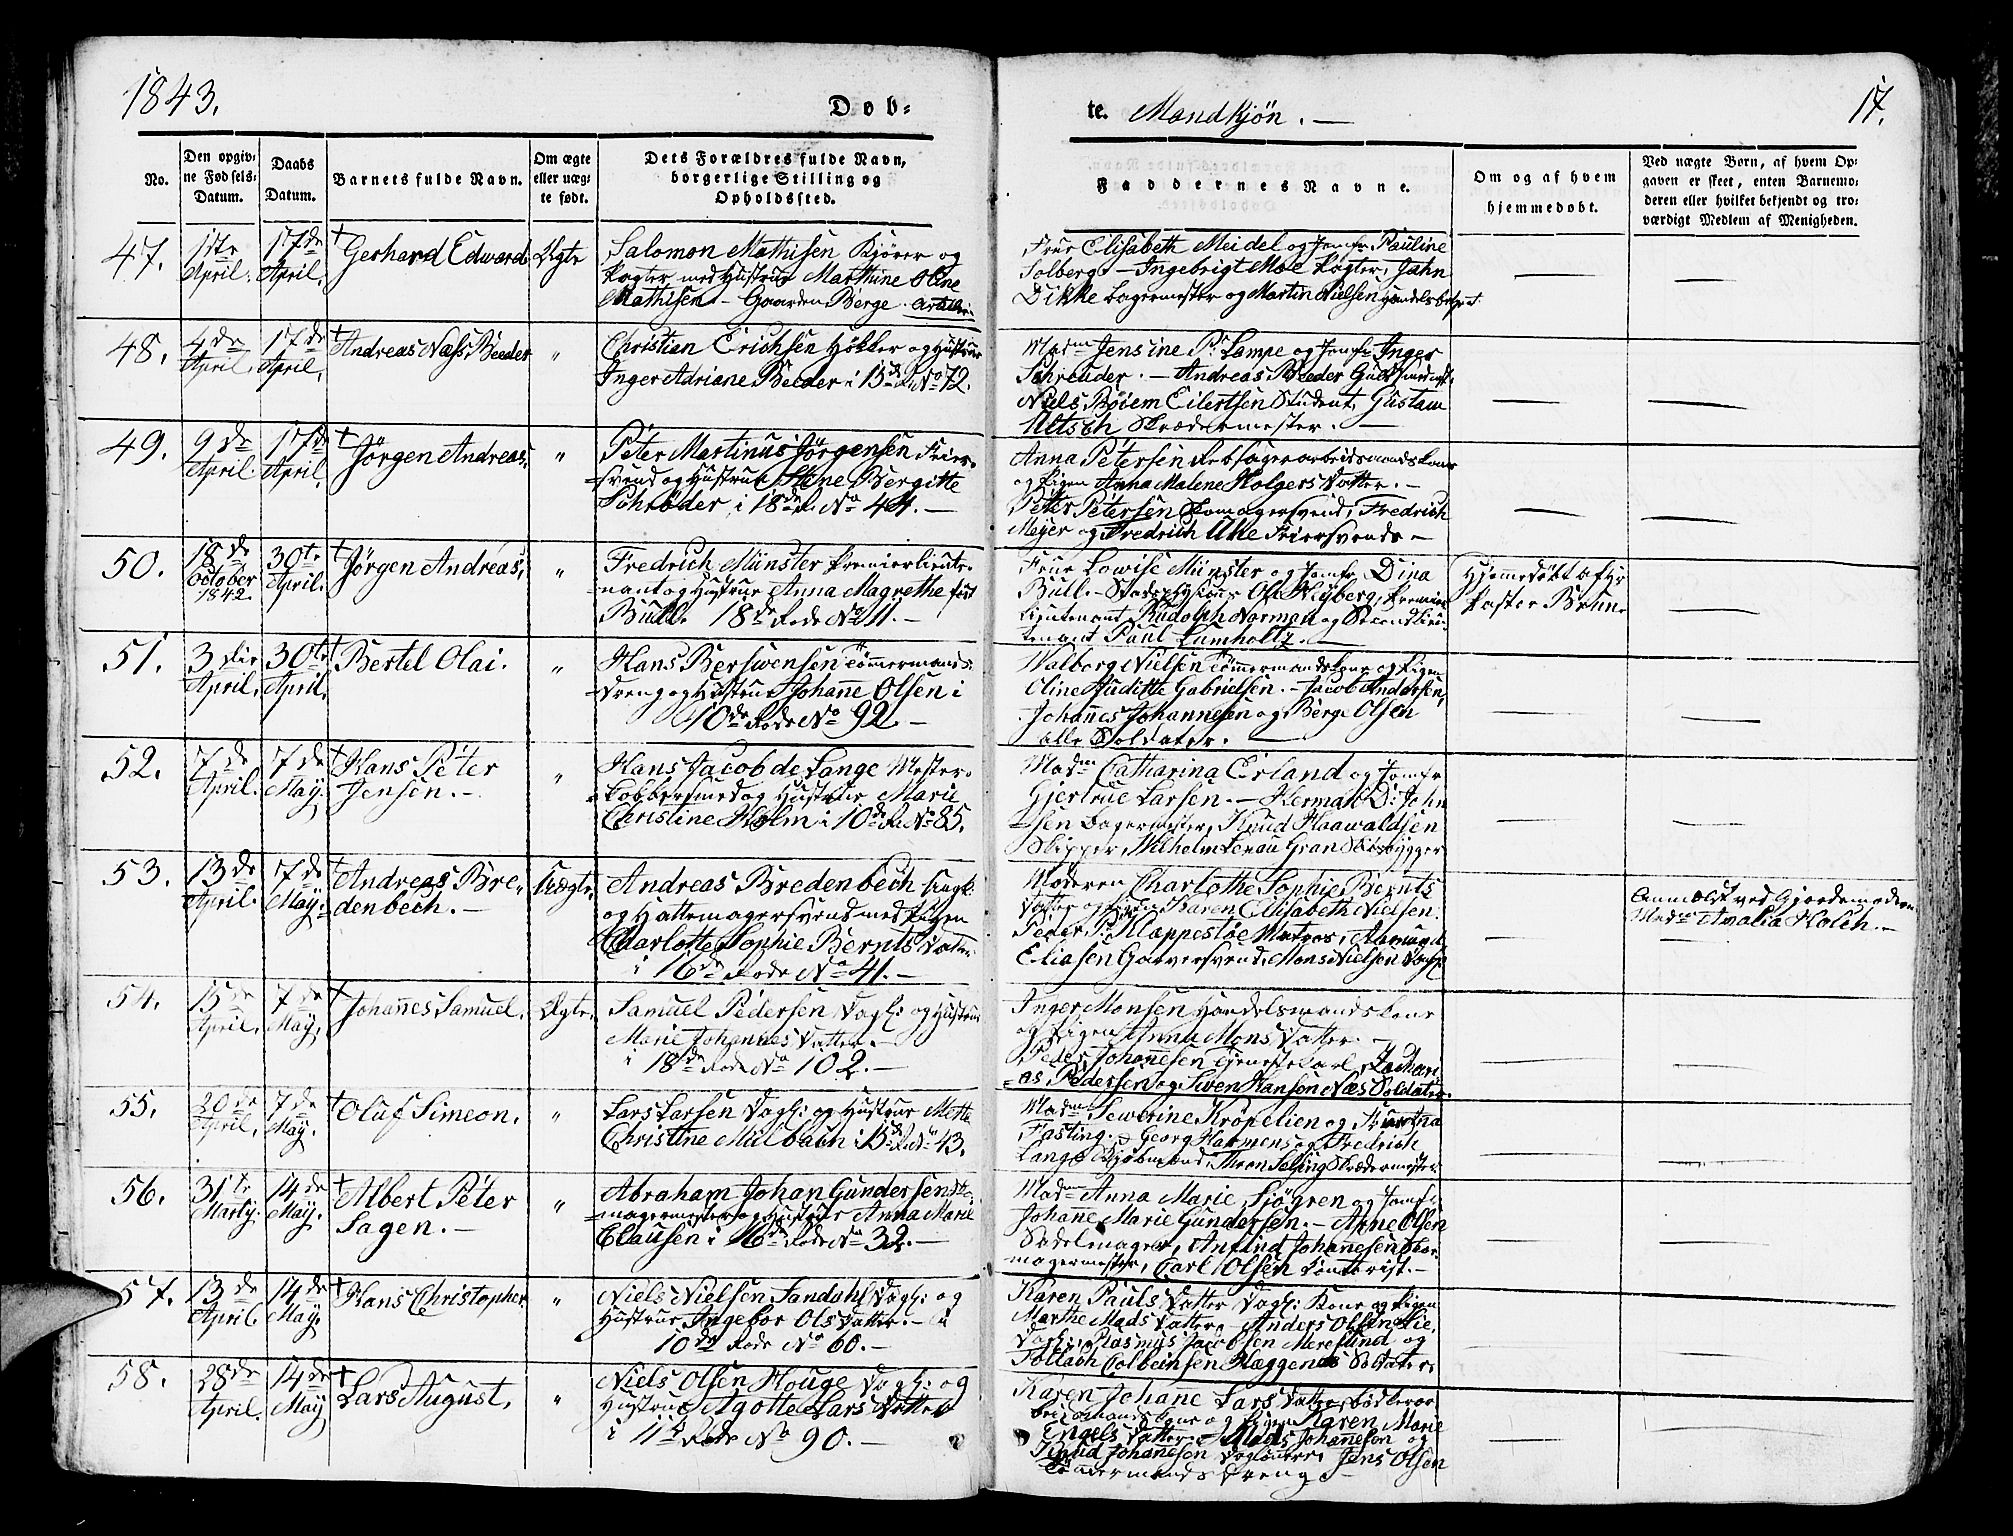 1843.
Døb-
te. Mandkjøn. —
17.
No.
Den opgiv-
ne Fødsels-
Datum.
Daabs
Datum.
Barnets fulde Navn.
Om ægte
eller uæg-
te født.
Dets Forældres fulde Navn,
borgerlige Stilling og
Opholdssted.
Faddernes Navne.
Om og af hvem
hjemmedøbt.
Ved uægte Børn, af hvem Op-
gaven er skeet, enten Barnemo-
deren eller hvilket bekjendt og tro-
værdigt Medlem af Menigheden.
47.
1ste
April.
17de
April.
Gerhard Edward
Ægte
Salomon Mathisen Kjører og
Fogter med Hustrue Marthine Oline
Mathisen — Gaarden Berge.
Frue Elisabeth Meidel og Jomfr Pauline
Solberg. — Ingebrigt Moe Fogter, Jahn
Dikke Bagermester og Martin Nielsen
— —
48.
4de
April.
17de
April.
Andreas Næss Beeder
"
Christian Erichsen Høkker og Hustrue
Inger Adriane Beeder i 15de R. No 72.
Madm Jensine P. Lampe og Jomfr Inger
Schreuder. — Andreas Beeder
Niels Bøiem Eilertsen Student, Gustam
Ultsch Skrædermester. —
— —
49.
9de
April.
17de
April.
Jørgen Andreas.
"
Peter Martinus Jørgensen Feier-
svend og Hustrue Stine Bergitte
Schrøder i 18de R. No 44. —
Anna Petersen Rebslagerarbeidsmandskone
og Pigen Anna Malene Holgers Datter. —
Peter Petersen Skomagersvend, Fredrich
Meyer og Fredrich Feiersvende —
— —
50.
18de
October
1842.
30te
April.
Jørgen Andreas,
"
Fredrich Münster Premierlieute-
nant og Hustrue Anna Magrethe født
Bull. 18de Rode No 11. —
Frue Lowise Münster og Jomfr Dina
Bull. — Stadsphysicus Ole Heiberg, Premier
Lieutenant Rudolph Norman og Secondlieu-
tenant Paul Lumholtz. —
Hjemmedøbt af Hr
Pastor Bruun.
—
51.
3die
April.
30te
April.
Bertel Olai.
"
Hans Berswensen Tømmermands-
dreng og Hustrue Johanne Olsen i
10de Rode No 92. —
Walborg Nielsen Tømmermandskone og Pigen
Oline Juditte Gabrielsen. — Jacob Andersen,
Johannes Johannesen og Berge Olsen
alle Soldater.
— —
52.
7de
April.
7de
May.
Hans Peter
Jensen. —
"
Hans Jacob de Lange Mester-
kobbersmed og Hustrue Marie
Christine Holm i 10de R. No 85.
Madm Catharina Erland og Jomfr
Gjertrue Larsen. — Herman D. John
sen Bagermester, Knud Haawaldsen
Skipper, Wilhelm Lenau Gran Skibsbygger
— —
53.
13de
April.
7de
May.
Andreas Bre-
denbech. —
Uægte.
Andreas Bredenbech Ungk:
og Hattemagersvend med Pigen
Charlotte Sophie Bernts Datter
i 16de Rode No 41. —
Moderen Charlothe Sophie Bernts
Datter og Pigen Karen Elisabeth Nielsen.
Peder P. Klappesløe Matros, Aamund
Eliasen Garversvend, Mons Nielsen Dagl
—
Anmeldt ved Gjordemoderen
Madm Amalia Holch. —
54.
15de
April.
7de
May.
Johannes Samuel.
Ægte.
Samuel Pedersen Dagl: og Hustrue
Marie Johannes Datter. —
i 18de Rode No 102. —
Inger Monsen Handelsmandskone
og Pigen Anna Mons Datter. —
Peder Johannesen Tjenestekarl, Zachari
as Pedersen og Swen Hanson Næs Soldater.
— —
55.
20de
April.
7de
May.
Oluf Simeon.
"
Lars Larsen Dagl: og Hustrue Mette
Christine Mülbach i 15de R. No 43.
Madm Sewerine Krøpelien og
Fasting. Georg Harmens og Fredrich
Lange Kjøbmænd, Thron Selsing Skrædermester
— —
56.
31te
Marty.
14de
May.
Albert Peter
Sagen. —
"
Abraham Johan Gundersen
magermester og Hustrue Anna Marie
Clausen i 16de Rode No 32. —
Madm Anna Marie Sjøgren og Jomfr
Johanne Marie Gundersen. — Arne Olsen
Sadelmager, Anfind Johannesen Skoe-
magermester, Carl Olsen Contorist. —
— —
57.
13de
April.
14de
May.
Hans Christopher
"
Niels Nielsen Sandahl Dagl: og
Hustrue Ingebor Ols Datter. — i
10de Rode No 60. —
Karen Pauls Datter Dagl: Kone og Pigen
Marthe Mads Datter. — Anders Olsen Lie,
Dagl: Rasmus Jacobsen Mereslind og
Tollach Colbeinsen Hæggenes Soldater.
— —
58.
28de
April.
14de
May
Lars August.
"
Niels Olsen Houge Dagl: og
Hustrue Agotte Lars Datter
i 11te Rode No 90. —
Karen Johanne Lars Datter Bødkerar
beidsmands Kone og Pigen Karen Marie
Engels Datter. — Mads Johannesen og
Knud Johannesen Daglønnere, Jens Olsen
Tøndermandsdreng. —
— —